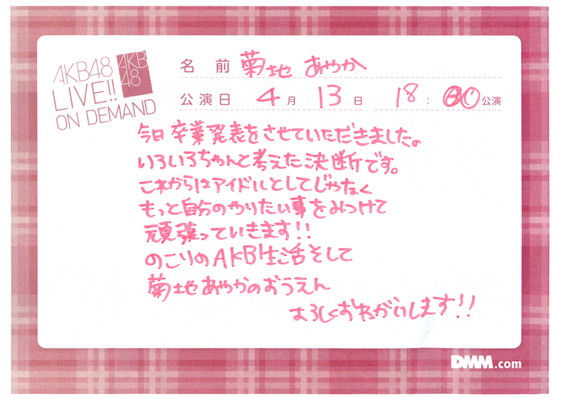 AKB48
LIVE!!
ON DEMAND
AKB
48
名 前 菊地 あやか
公演日 4月 13日 18:00公演
今日卒業発表をさせていただきました。
いろいろちゃんと考えた決断です。
これからはアイドルとしてじゃなく
もっと自分のやりたい事をみつけて
頑張っていきます!!
のこりのAKB生活そして
菊地あやかのおうえん
よろしくおねがいします!!
DMM.com